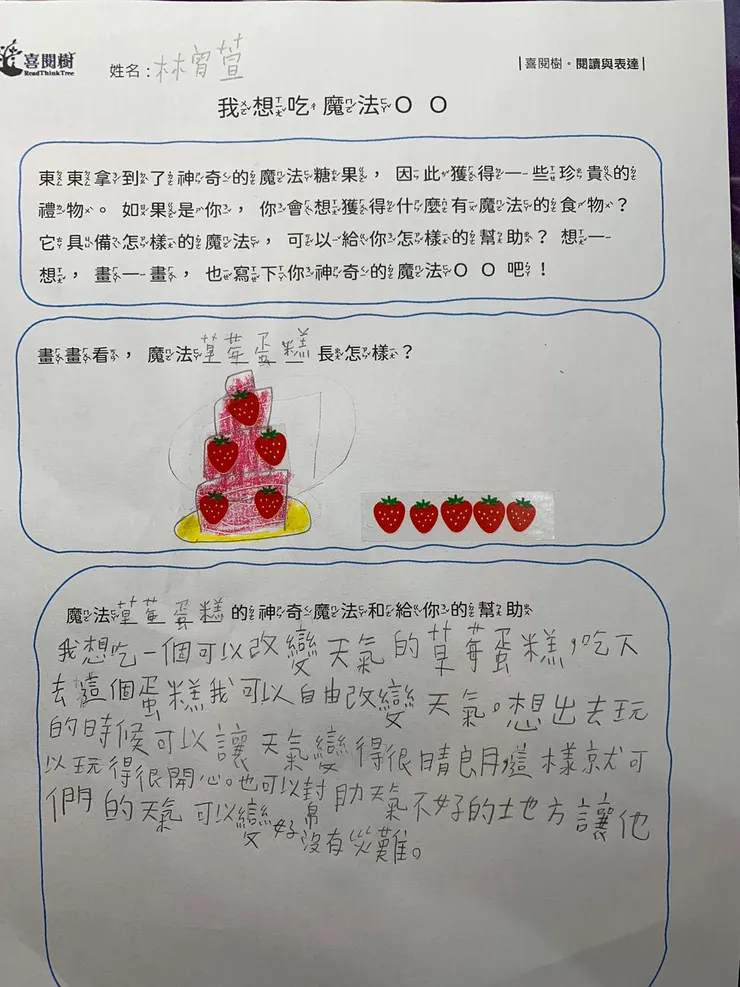 喜閱樹
ReadThinkTree
姓名：林宥萱
|喜閱樹。閱讀與表達|
我想吃魔法ＯＯ
東東拿到了神奇的魔法糖果，因此獲得一些珍貴的
禮物。如果是你，你會想獲得什麼有魔法的食物？
它具備怎樣的魔法，可以給你怎樣的幫助？想一
想，畫一畫，也寫下你神奇的魔法ＯＯ吧！
畫畫看，魔法草莓蛋糕長怎樣？
魔法草莓蛋糕的神奇魔法和給你的幫助
我想吃一個可以改變天氣的草莓蛋糕，吃下
去這個蛋糕我可以自由改變天氣。想出去玩
的時候可以讓天氣變得很晴朗，這樣就可
以玩得很開心。也可以幫助天氣不好的地方讓他
們的天氣可以變好沒有災難。